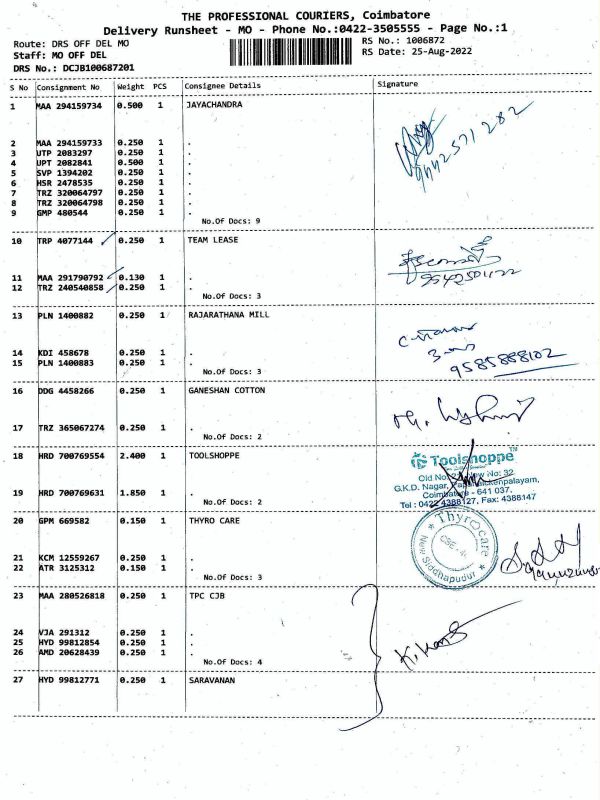 THE PROFESSIONAL COURIERS, Coimbatore
Delivery Runsheet - MO - Phone No.:0422-3505555 - Page No.:1
Route: DRS OFF DEL MO
RS No.: 1006872
Staff: MO OFF DEL
RS Date: 25-Aug-2022
DRS No.: DCJB100687201
S No Consignment No Weight PCS Consignee Details Signature
1 MAA 294159734 0.500 1 JAYACHANDRA
9442571282
2 MAA 294159733 0.250 1 .
3 UTP 2083297 0.250 1 .
4 UPT 2082841 0.500 1 .
5 SVP 1394202 0.250 1 .
6 HSR 2478535 0.250 1 .
7 TRZ 320064797 0.250 1 .
8 TRZ 320064798 0.250 1 .
9 GMP 480544 0.250 1 .
No.Of Docs: 9
10 TRP 4077144 0.250 1 TEAM LEASE
11 MAA 291790792 0.130 1 .
12 TRZ 240540858 0.250 1 .
No.Of Docs: 3
13 PLN 1400882 0.250 1 RAJARATHANA MILL
14 KDI 458678 0.250 1 .
15 PLN 1400883 0.250 1 .
9585888102
No.Of Docs: 3
16 DDG 4458266 0.250 1 GANESHAN COTTON
17 TRZ 365067274 0.250 1 .
No.Of Docs: 2
18 HRD 700769554 2.400 1 TOOLSHOPPE
Toolshoppe TM
No: 32
G.K.D. Nagar,
Coimbatore - 641 037.
Tel : 0422 4388127, Fax: 4388147
19 HRD 700769631 1.850 1 .
No.Of Docs: 2
20 GPM 669582 0.150 1 THYRO CARE
Thyrocare
New Siddhapudur
21 KCM 12559267 0.250 1 .
22 ATR 3125312 0.150 1 .
No.Of Docs: 3
23 MAA 280526818 0.250 1 TPC CJB
24 VJA 291312 0.250 1 .
25 HYD 99812854 0.250 1 .
26 AMD 20628439 0.250 1 .
No.Of Docs: 4
27 HYD 99812771 0.250 1 SARAVANAN